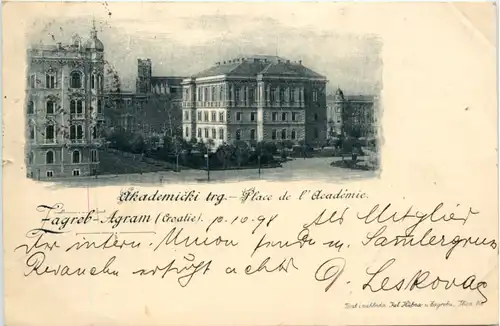 Akademički trg. — Place de l'Académie.
Zagreb-Agram (Croatie). 10.10.98 Als Mitglied
der intern. Union sende m. Sammlergruss
Revanche erfolgt u. achte D. Leskovac
Tisak i naklada Kat. Hühna u Zagrebu,